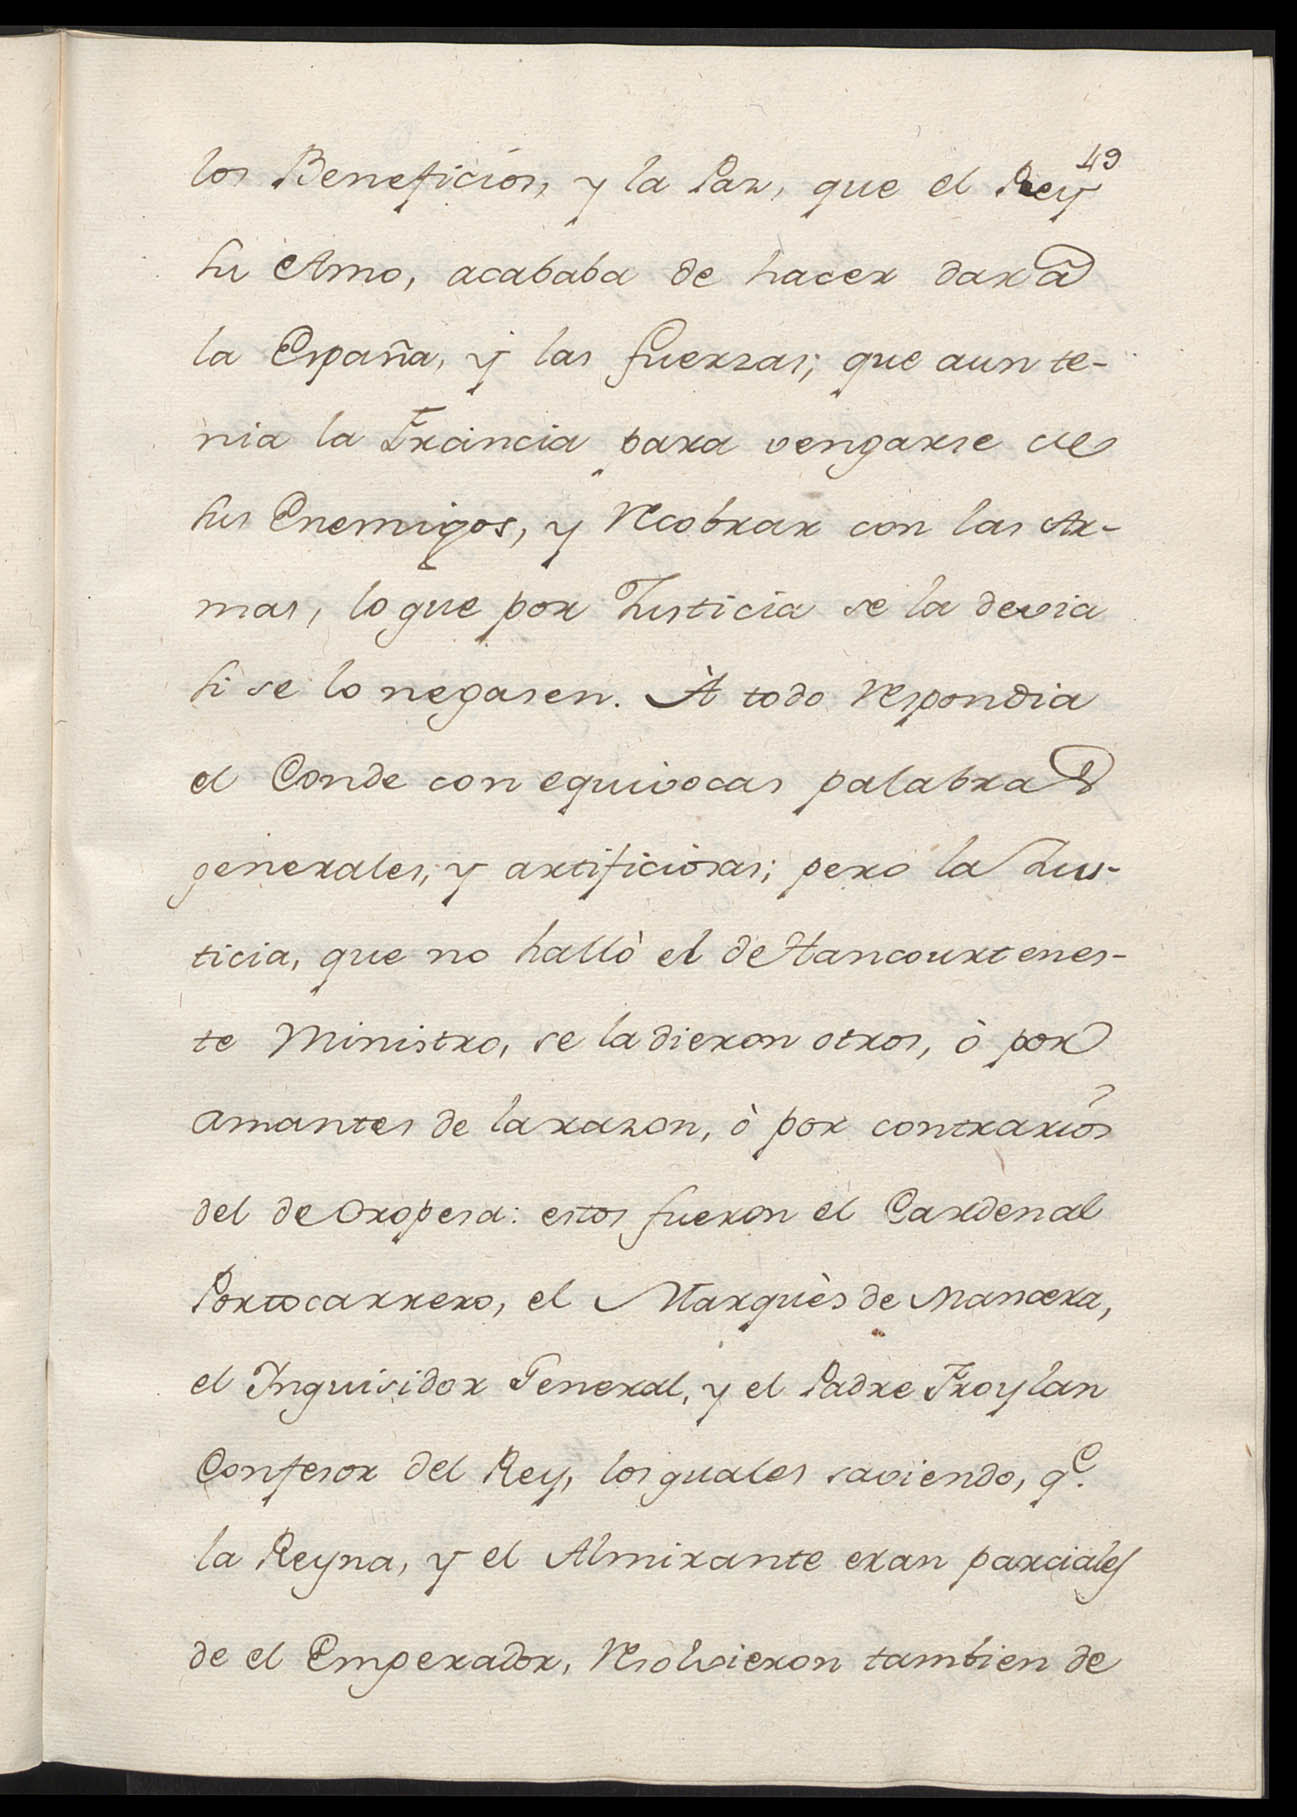 49
los Beneficios, y la Paz, que el Rey
su Amo, acababa de hacer dar à
la España, y las fuerzas; que aun te-
nia la Francia para vengarse de
sus Enemigos, y recobrar con las Ar-
mas, lo que por Justicia se la devia
si se lo negasen. À todo respondia
el Conde con equivocas palabras
generales, y artificiosas; pero la Jus-
ticia, que no hallò el de Hancourt en es-
te Ministro, se la dieron otros, ò por
amantes de la razon, ò por contrarios
del de Oropesa: estos fueron el Cardenal
Portocarrero, el Marquès de Mancera,
el Inquisidor General, y el Padre Froylan
Confesor del Rey, los quales saviendo, q.e
la Reyna, y el Almirante eran parciales
de el Emperador, resolvieron tambien de